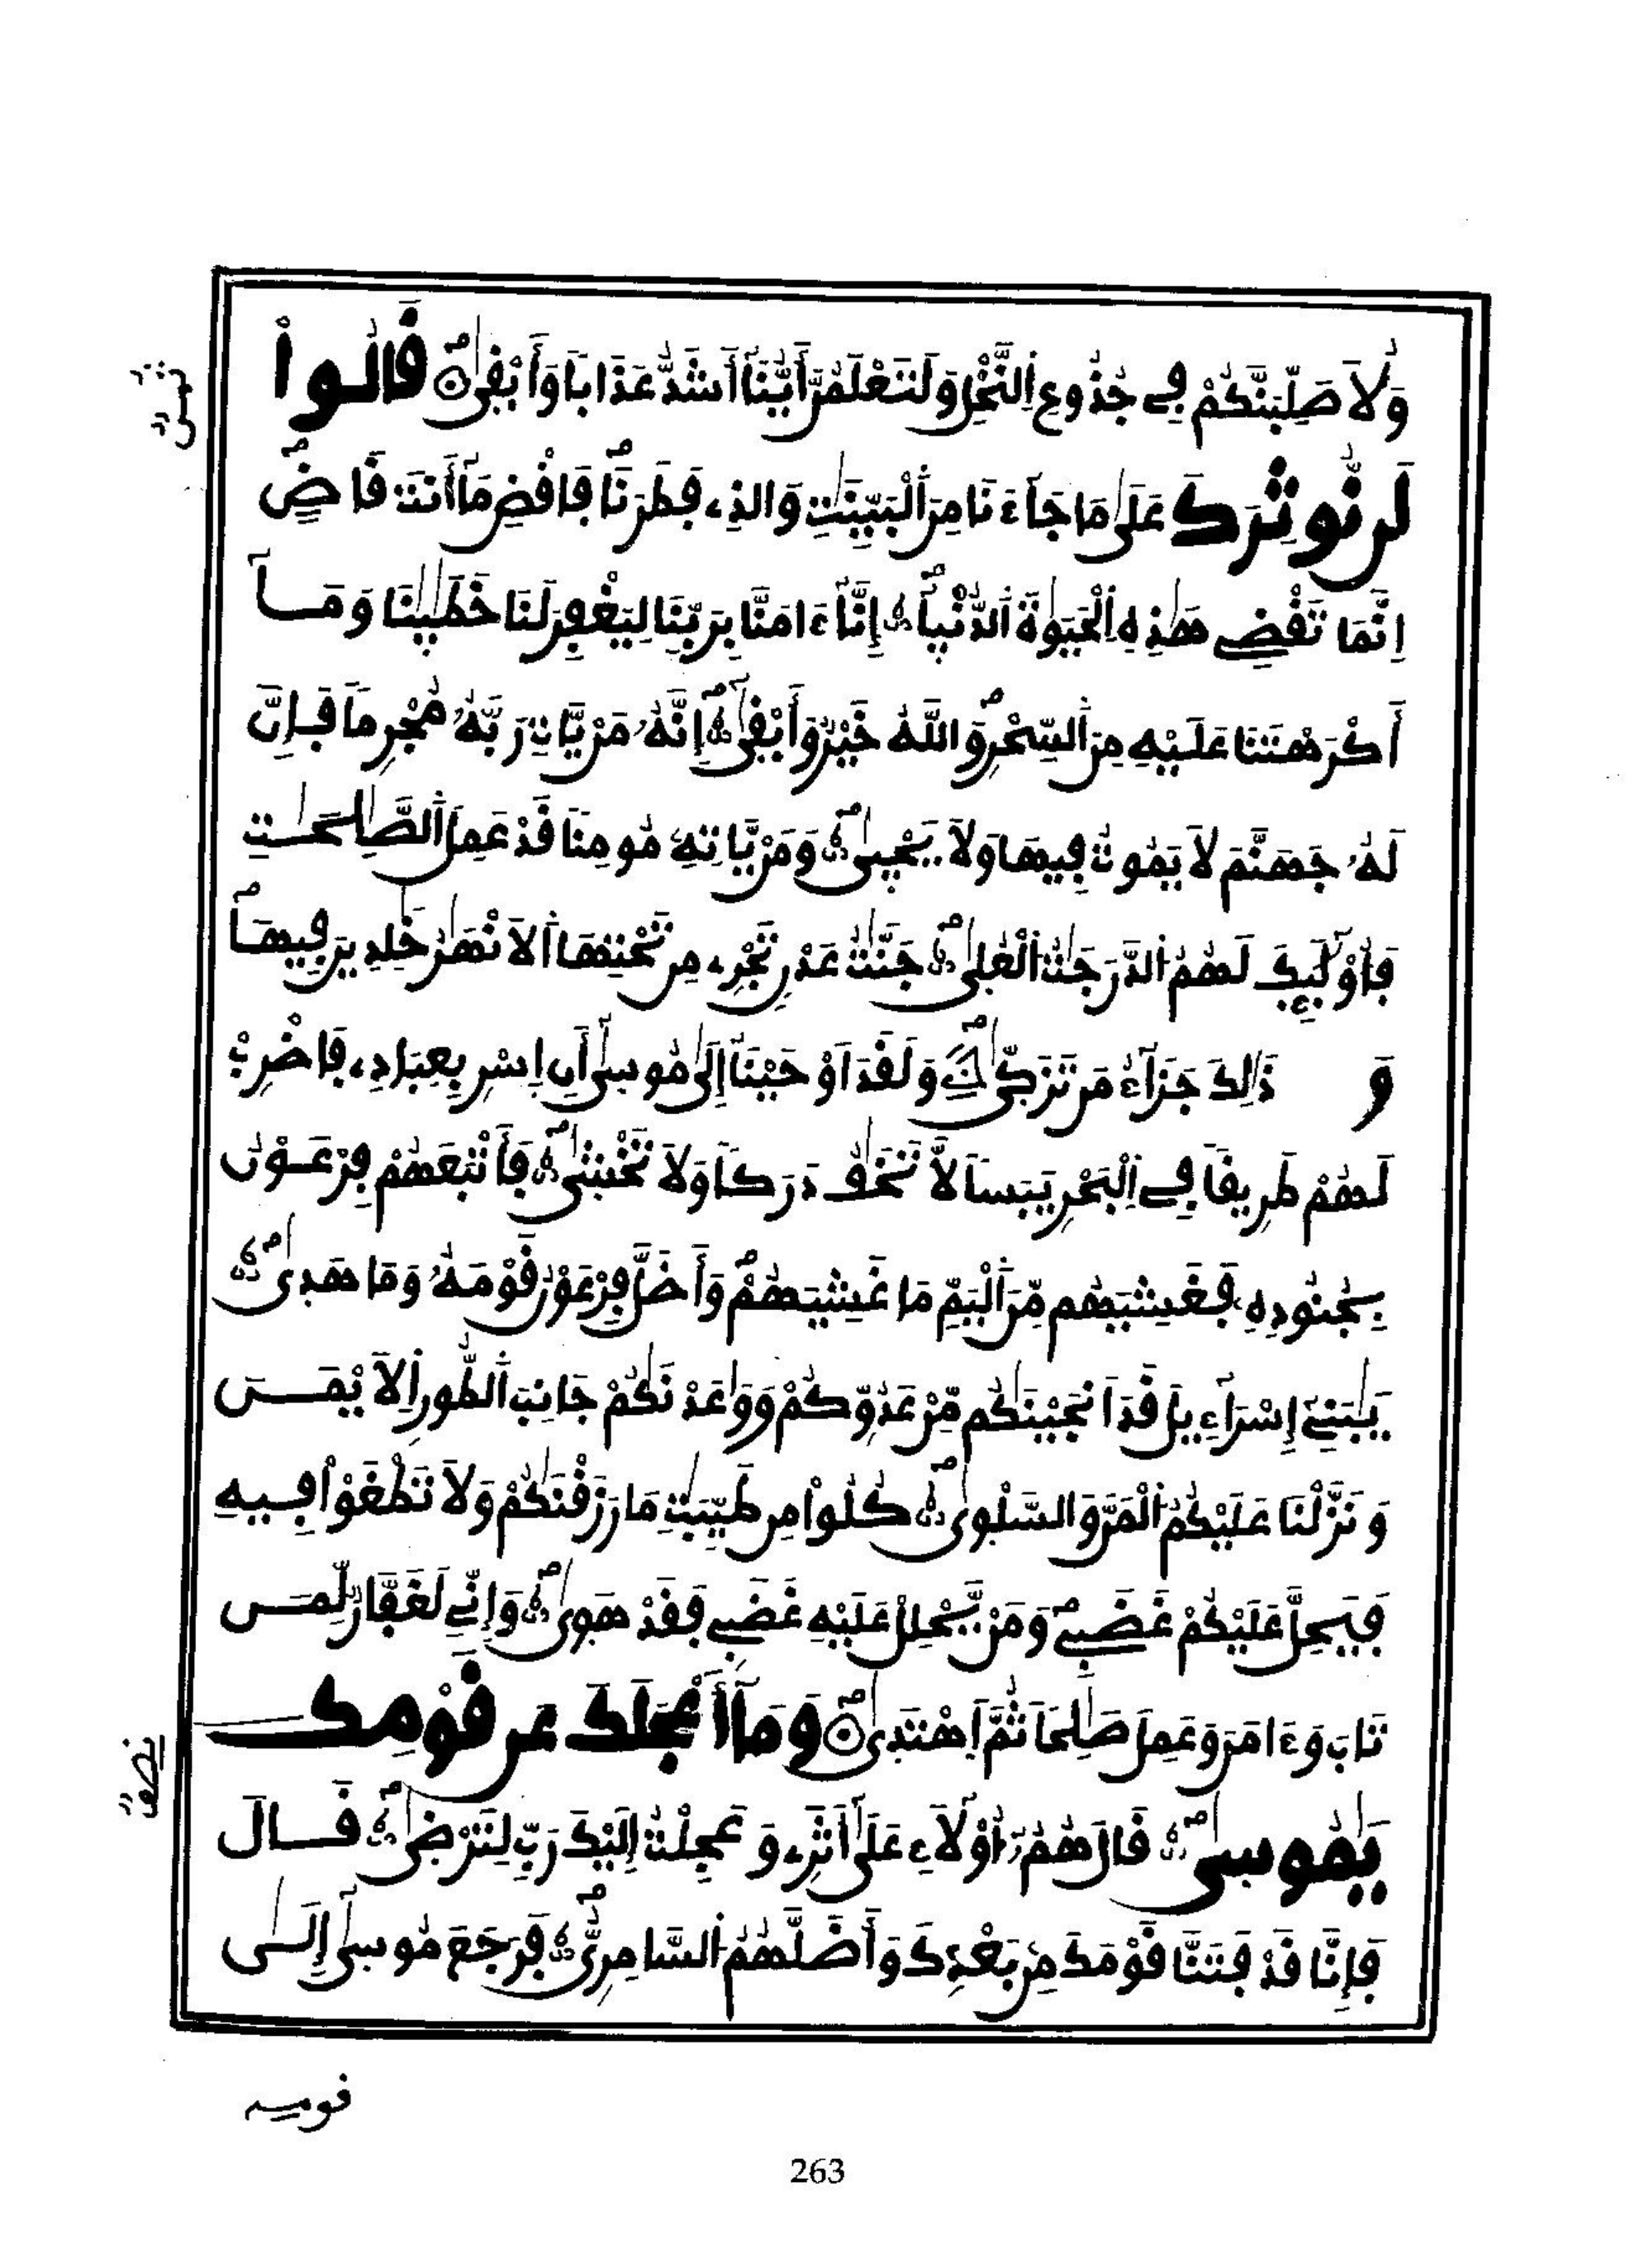 وَلَأُصَلِّبَنَّكُمْ فِے جُذُوعِ اِ۬لنَّخْلِ وَلَتَعْلَمُنَّ أَيُّنَآ أَشَدُّ عَذَاباٗ وَأَبْقۭيٰۖ قَالُواْ
ثمن
لَن نُّوثِرَكَ عَلَيٰ مَا جَآءَنَا مِنَ اَ۬لْبَيِّنَٰتِ وَالذِے فَطَرَنَاۖ فَاقْضِ مَآ أَنتَ قَاضٍۖ
اِنَّمَا تَقْضِے هَٰذِهِ اِ۬لْحَيَوٰةَ اَ۬لدُّنْيَآۖ إِنَّآ ءَامَنَّا بِرَبِّنَا لِيَغْفِرَ لَنَا خَطَٰيَٰنَا وَمَآ
أَكْرَهْتَنَا عَلَيْهِ مِنَ اَ۬لسِّحْرِۖ وَاللَّهُ خَيْرٞ وَأَبْق۪يٰٓۖ إِنَّهُۥ مَنْ يَّاتِ رَبَّهُۥ مُجْرِماٗ فَإِنَّ
لَهُۥ جَهَنَّمَ لَا يَمُوتُ فِيهَا وَلَا يَحْي۪يٰۖ وَمَنْ يَّاتِهِۦ مُومِناٗ قَدْ عَمِلَ اَ۬لصَّٰلِحَٰتِ
فَأُوْلَٰٓئِكَ لَهُمُ اُ۬لدَّرَجَٰتُ اُ۬لْعُل۪يٰۖ جَنَّٰتُ عَدْنٖ تَجْرِے مِن تَحْتِهَا اَ۬لَانْهَٰرُ خَٰلِدِينَ فِيهَاۖ
وَ ذَٰلِكَ جَزَآءُ مَن تَزَكّ۪يٰۖ وَلَقَدَ اَوْحَيْنَآ إِلَيٰ مُوس۪يٰٓ أَنِ اِسْرِ بِعِبَادِے فَاضْرِبْ
لَهُمْ طَرِيقاٗ فِے اِ۬لْبَحْرِ يَبَساٗ لَّا تَخَٰفُ دَرَكاٗ وَلَا تَخْش۪يٰۖ فَأَتْبَعَهُمْ فِرْعَوْنُ
بِجُنُودِهِۦ فَغَشِيَهُم مِّنَ اَ۬لْيَمِّ مَا غَشِيَهُمْۖ وَأَضَلَّ فِرْعَوْنُ قَوْمَهُۥ وَمَا هَد۪يٰۖ
يَٰبَنِےٓ إِسْرَآءِيلَ قَدَ اَنجَيْنَٰكُم مِّنْ عَدُوِّكُمْ وَوَٰعَدْنَٰكُمْ جَانِبَ اَ۬لطُّورِ اِ۬لَايْمَنَ
وَنَزَّلْنَا عَلَيْكُمُ اُ۬لْمَنَّ وَالسَّلْو۪يٰۖ كُلُواْ مِن طَيِّبَٰتِ مَا رَزَقْنَٰكُمْ وَلَا تَطْغَوْاْ فِيهِ
فَيَحِلَّ عَلَيْكُمْ غَضَبِےۖ وَمَنْ يَّحْلِلْ عَلَيْهِ غَضَبِے فَقَدْ هَو۪يٰۖ وَإِنِّے لَغَفَّارٞ لِّمَن
تَابَ وَءَامَنَ وَعَمِلَ صَٰلِحاٗ ثُمَّ اَهْتَد۪يٰۖ وَمَآ أَعْجَلَكَ عَن قَوْمِكَ
نصف
يَٰمُوس۪يٰۖ قَالَ هُمُۥٓ أُوْلَآءِ عَلَيٰٓ أَثَرِے وَعَجِلْتُ إِلَيْكَ رَبِّ لِتَرْض۪يٰۖ قَالَ
فَإِنَّا قَدْ فَتَنَّا قَوْمَكَ مِنۢ بَعْدِكَ وَأَضَلَّهُمُ اُ۬لسَّامِرِيُّۖ فَرَجَعَ مُوس۪يٰٓ إِلَيٰ
قومه
263